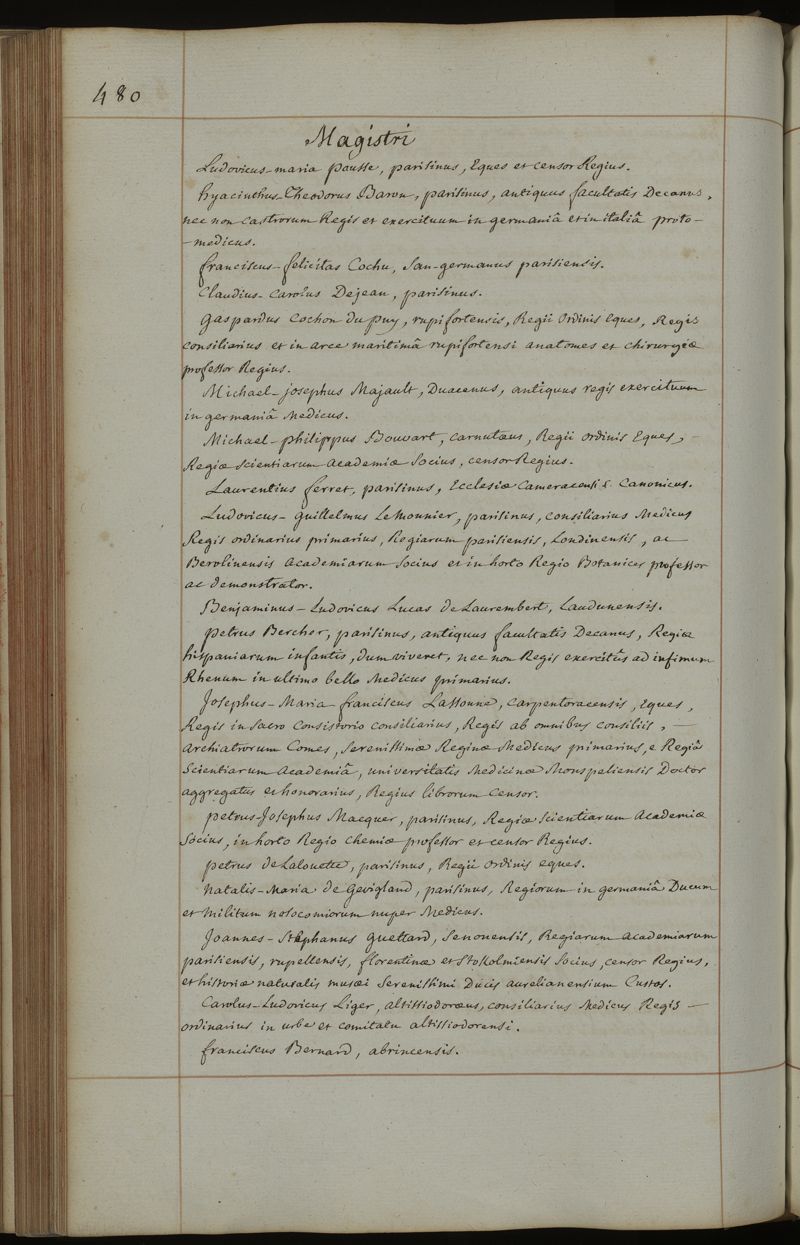 480
Magistri
Ludovicus-maria pousse, parisinus, Eques et censor Regius.
hyacinthus-Theodorus Baron, parisinus, antiquus facultatis Decanus,
nec non castrorum Regis et exercituum in germaniâ et in italiâ proto-
-medicus.
franciscus-felicitas Cochu, San-germanus parisiensis.
Claudius-Carolus Dejean, parisinus.
Gaspardus Cochon du puy, rupifortensis, Regii Ordinis Eques, Regis
consiliarius et in arce maritimâ rupifortensi anatomes et chirurgiæ
professor Regius.
Michael-josephus Majault, Duacenus, antiquus regis exercituum
in germaniâ Medicus.
Michael-philippus Bouvart, carnutæus, Regii ordinis Eques,
Regiæ scientiarum academiæ Socius, censor Regius.
Laurentius ferret, parisinus, Ecclesiæ Cameracensis Canonicus.
Ludovicus-Guillelmus LeMonnier, parisinus, consiliarius Medicus
Regis ordinarius primarius, Regiarum parisiensis, Londinensis, ac
Berolinensis academiarum Socius et in horto Regio Botanices professor
ac demonstrator.
Benjaminus-Ludovicus Lucas de Laurembert, Laudunensis.
petrus Bercher, parisinus, antiquus facultatis Decanus, Regiæ
hispaniarum infantis, dum viveret, nec non Regis exercitûs ad infimum
Rhenum in ultimo bello Medicus primarius.
Josephus-Maria-franciscus Lassonne, Carpentoracensis, Eques,
Regis in Sacro Consistorio consiliarius, Regis ab omnibus consiliis, —
archiatrorum Comes, Serenissimæ Reginæ Medicus primarius, e Regiâ
Scientiarum academiâ, universitatis Medicinæ Monspeliensis Doctor
aggregatus et honorarius, Regius librorum Censor.
petrus-Josephus Macquer, parisinus, Regiæ scientiarum academiæ
Socius, in horto Regio chemiæ professor et censor Regius.
petrus de Lalouette, parisinus, Regii ordinis eques.
Natalis-Maria de Gevigland, parisinus, Regiorum in germaniâ Ducum
et Militum nosocomiorum nuper Medicus.
Joannes-Stephanus Guettard, Senonensis, Regiarum academiarum
parisiensis, rupellensis, florentinæ et Stokolmiensis Socius, censor Regius,
et historiæ naturalis musæi Serenissimi Ducis aurelianensium Custos.
Carolus-Ludovicus Liger, altissiodoræus, consiliarius Medicus Regis —
ordinarius in urbe et comitatu altissiodorensi.
franciscus Bernard, abrincensis.